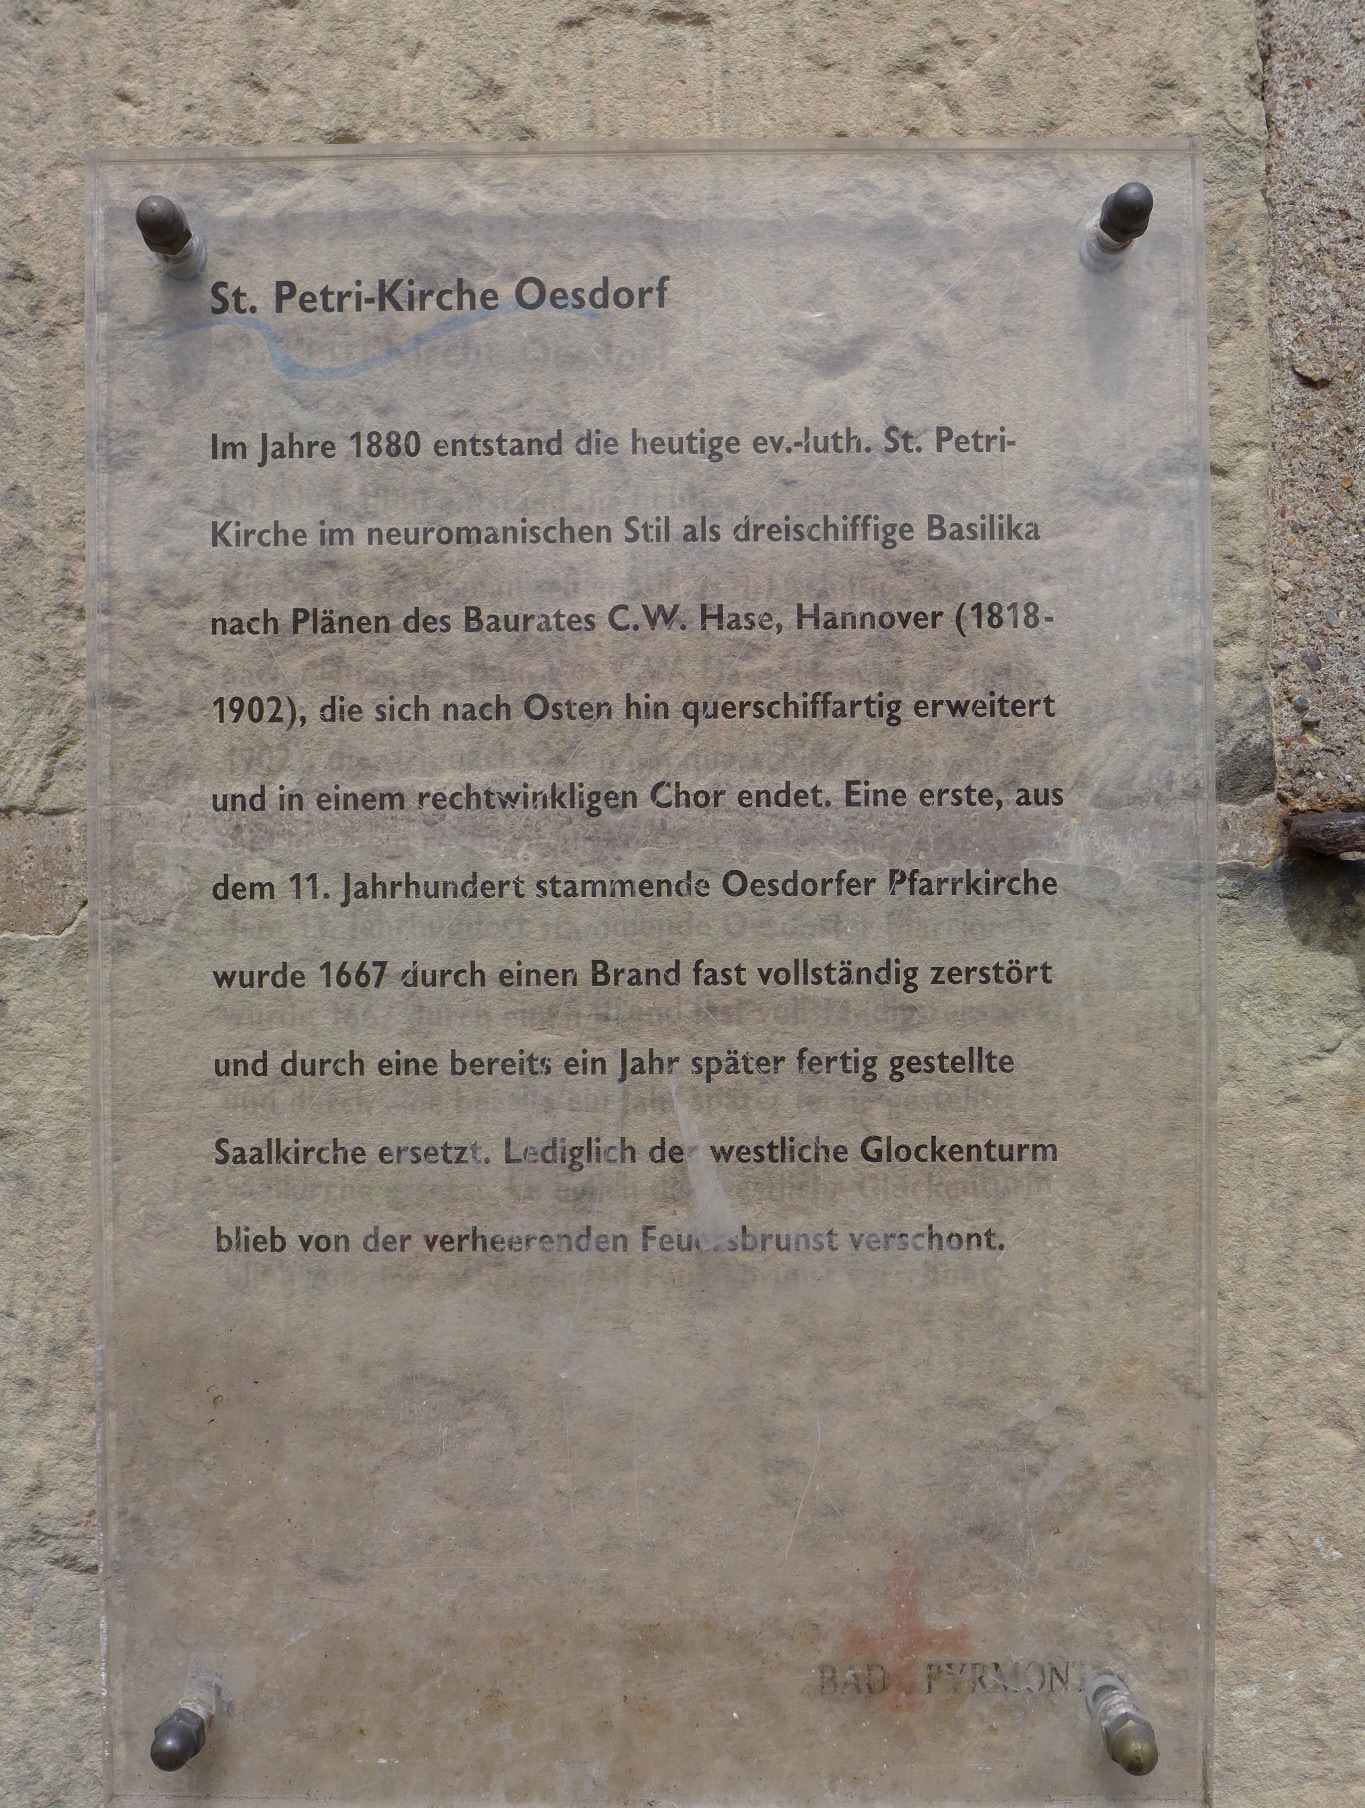 St. Petri-Kirche Oesdorf
Im Jahre 1880 entstand die heutige ev.-luth. St. Petri-
Kirche im neuromanischen Stil als dreischiffige Basilika
nach Plänen des Baurates C.W. Hase, Hannover (1818-
1902), die sich nach Osten hin querschiffartig erweitert
und in einem rechtwinkligen Chor endet. Eine erste, aus
dem 11. Jahrhundert stammende Oesdorfer Pfarrkirche
wurde 1667 durch einen Brand fast vollständig zerstört
und durch eine bereits ein Jahr später fertig gestellte
Saalkirche ersetzt. Lediglich der westliche Glockenturm
blieb von der verheerenden Feuersbrunst verschont.
BAD PYRMONT